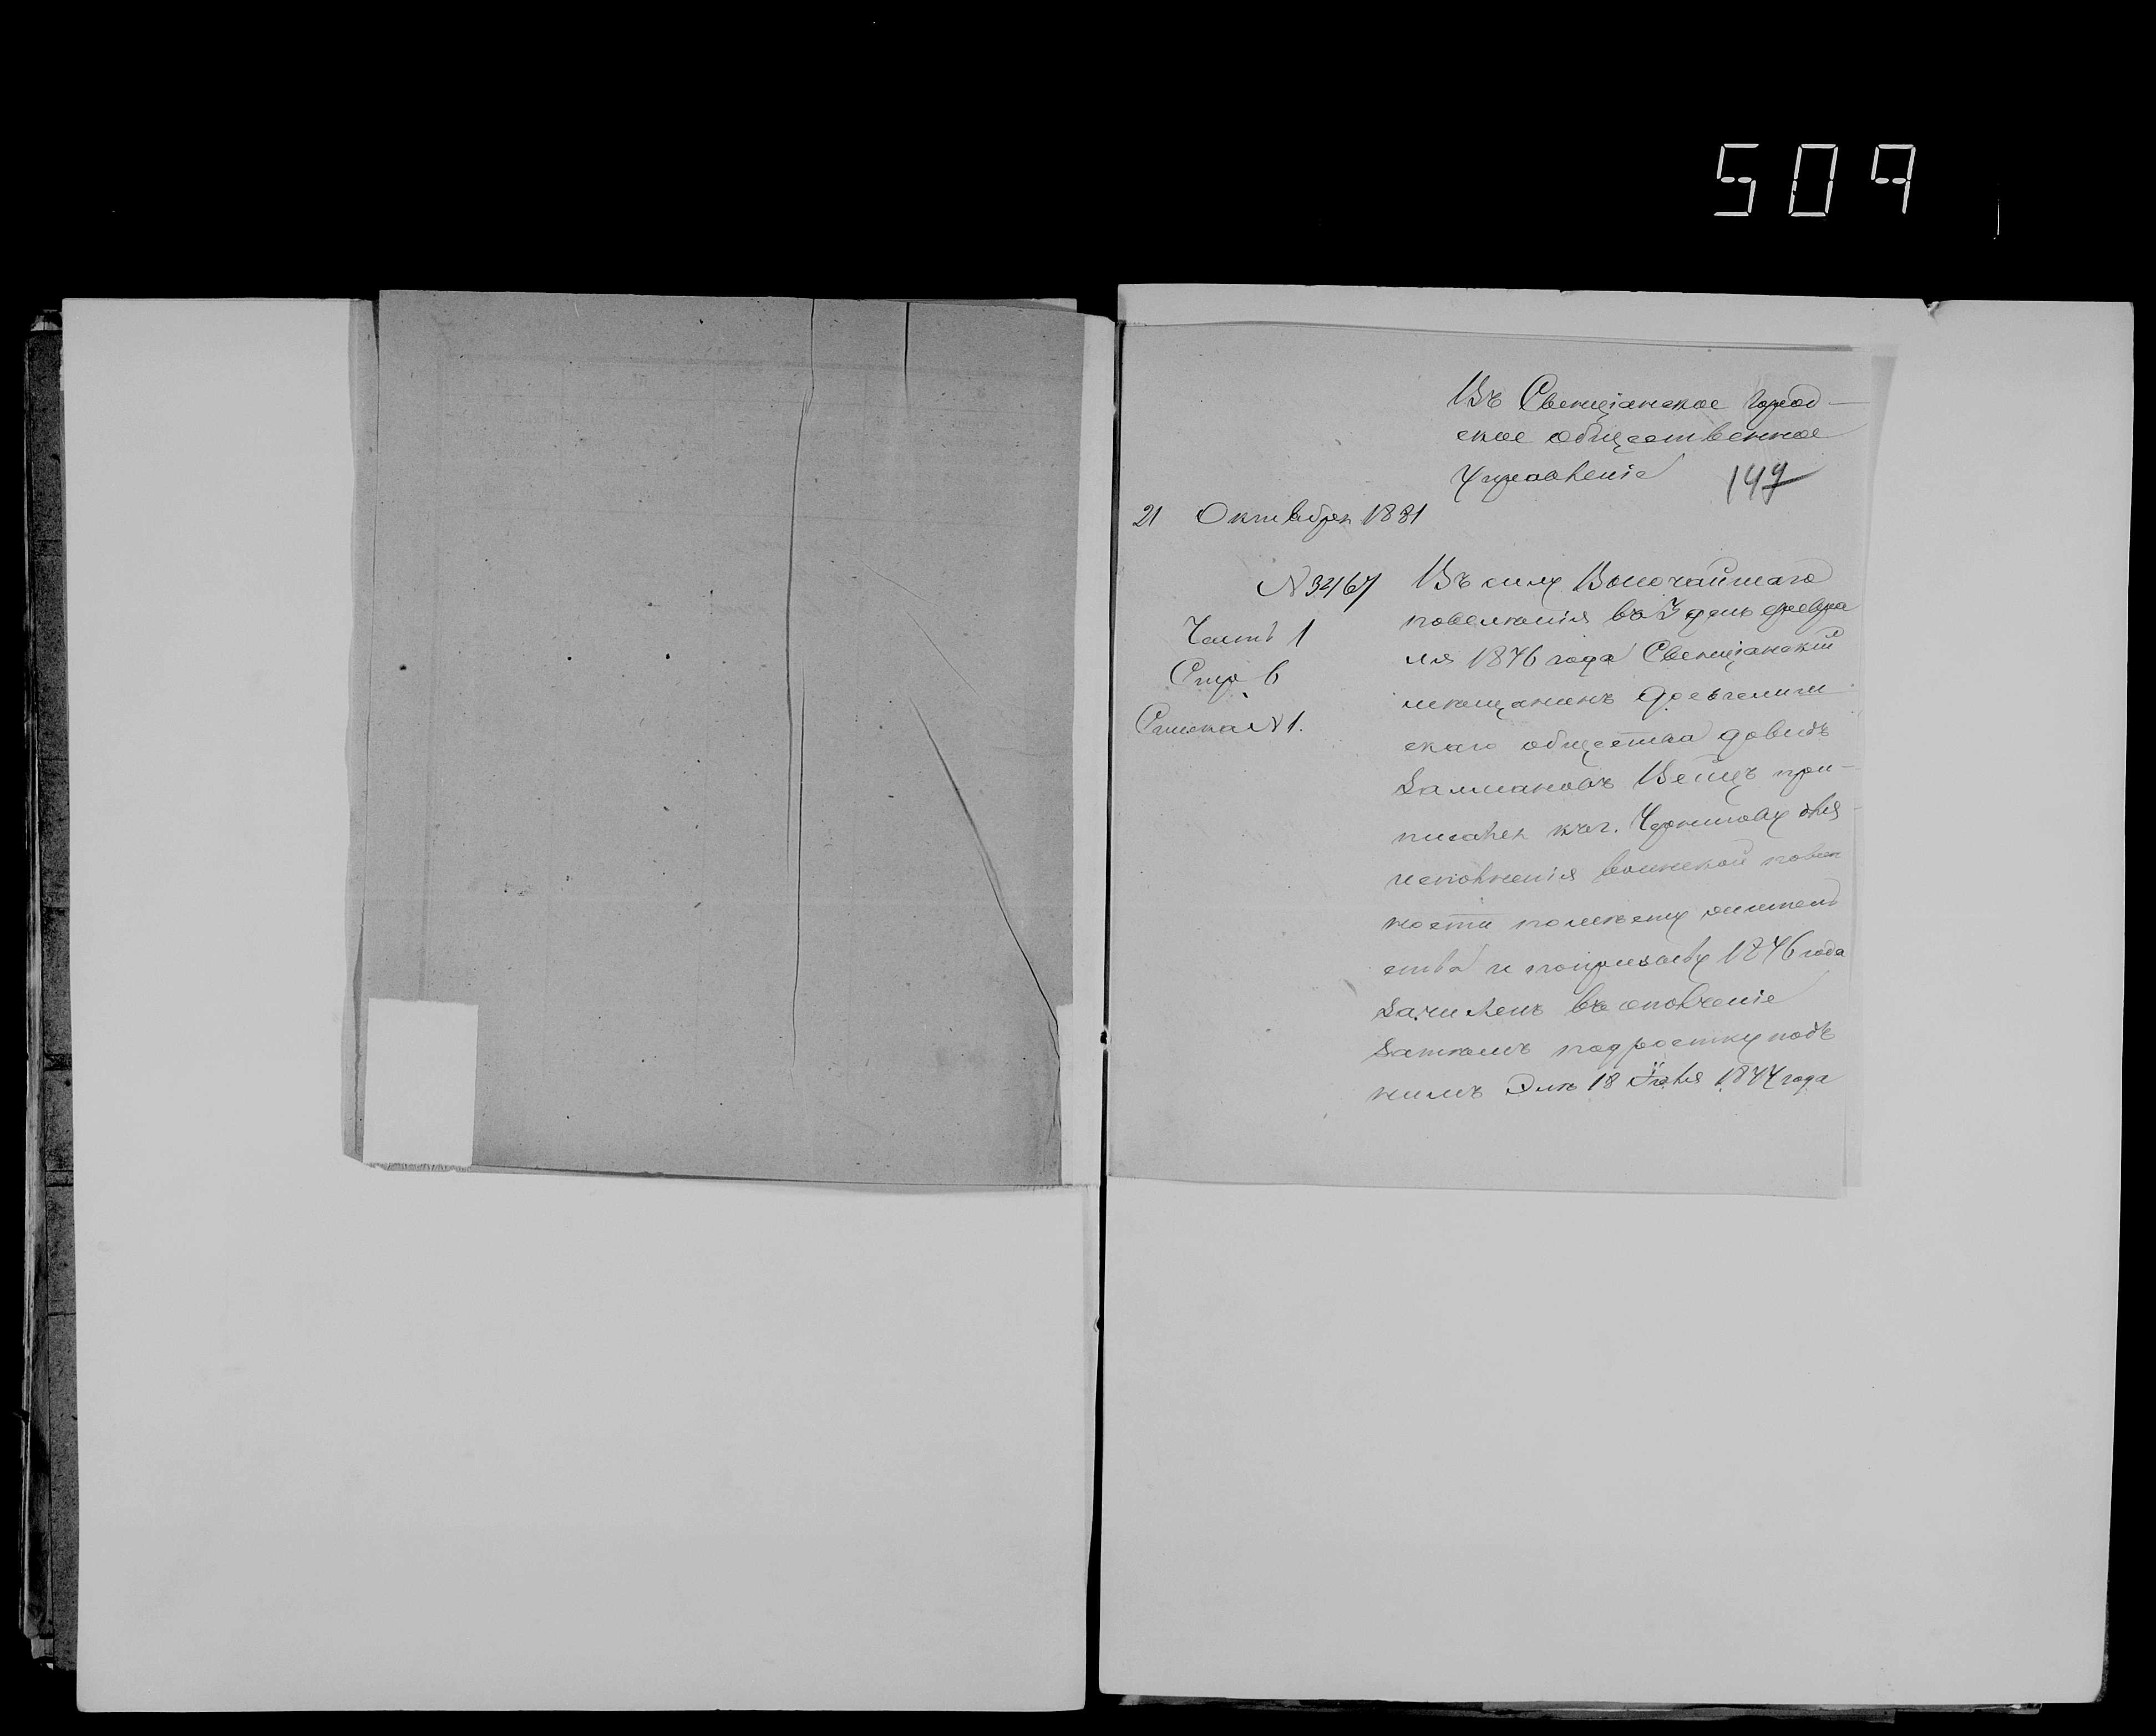 509
Въ Свенцянское Город-
ское общественное
Управленіе
149
21 Октября 1881
N 3467
Часть 1
Стр 6
Списка N 1.
Въ силу Высочайшаго
повеленія въ 3 день февра
ля 1876 года Свенцянскій
мещанинъ
скаго общества Довидъ
Залмановъ Вейцъ при-
писанъ къ г. Чернигову для
исполненія воинской повин
ности по месту жительс
ства и по призыву 1876 года
зачисленъ въ ополченіе
затемъ подростку подъ
нимъ 18 Іюля 1877 года